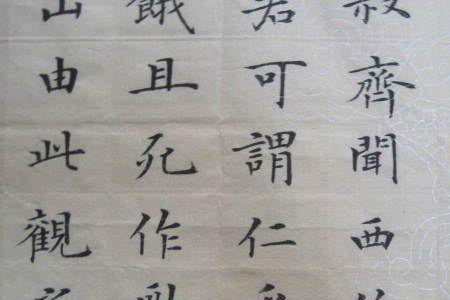 叔齊聞西
君可謂仁
餓且死作
山由此觀